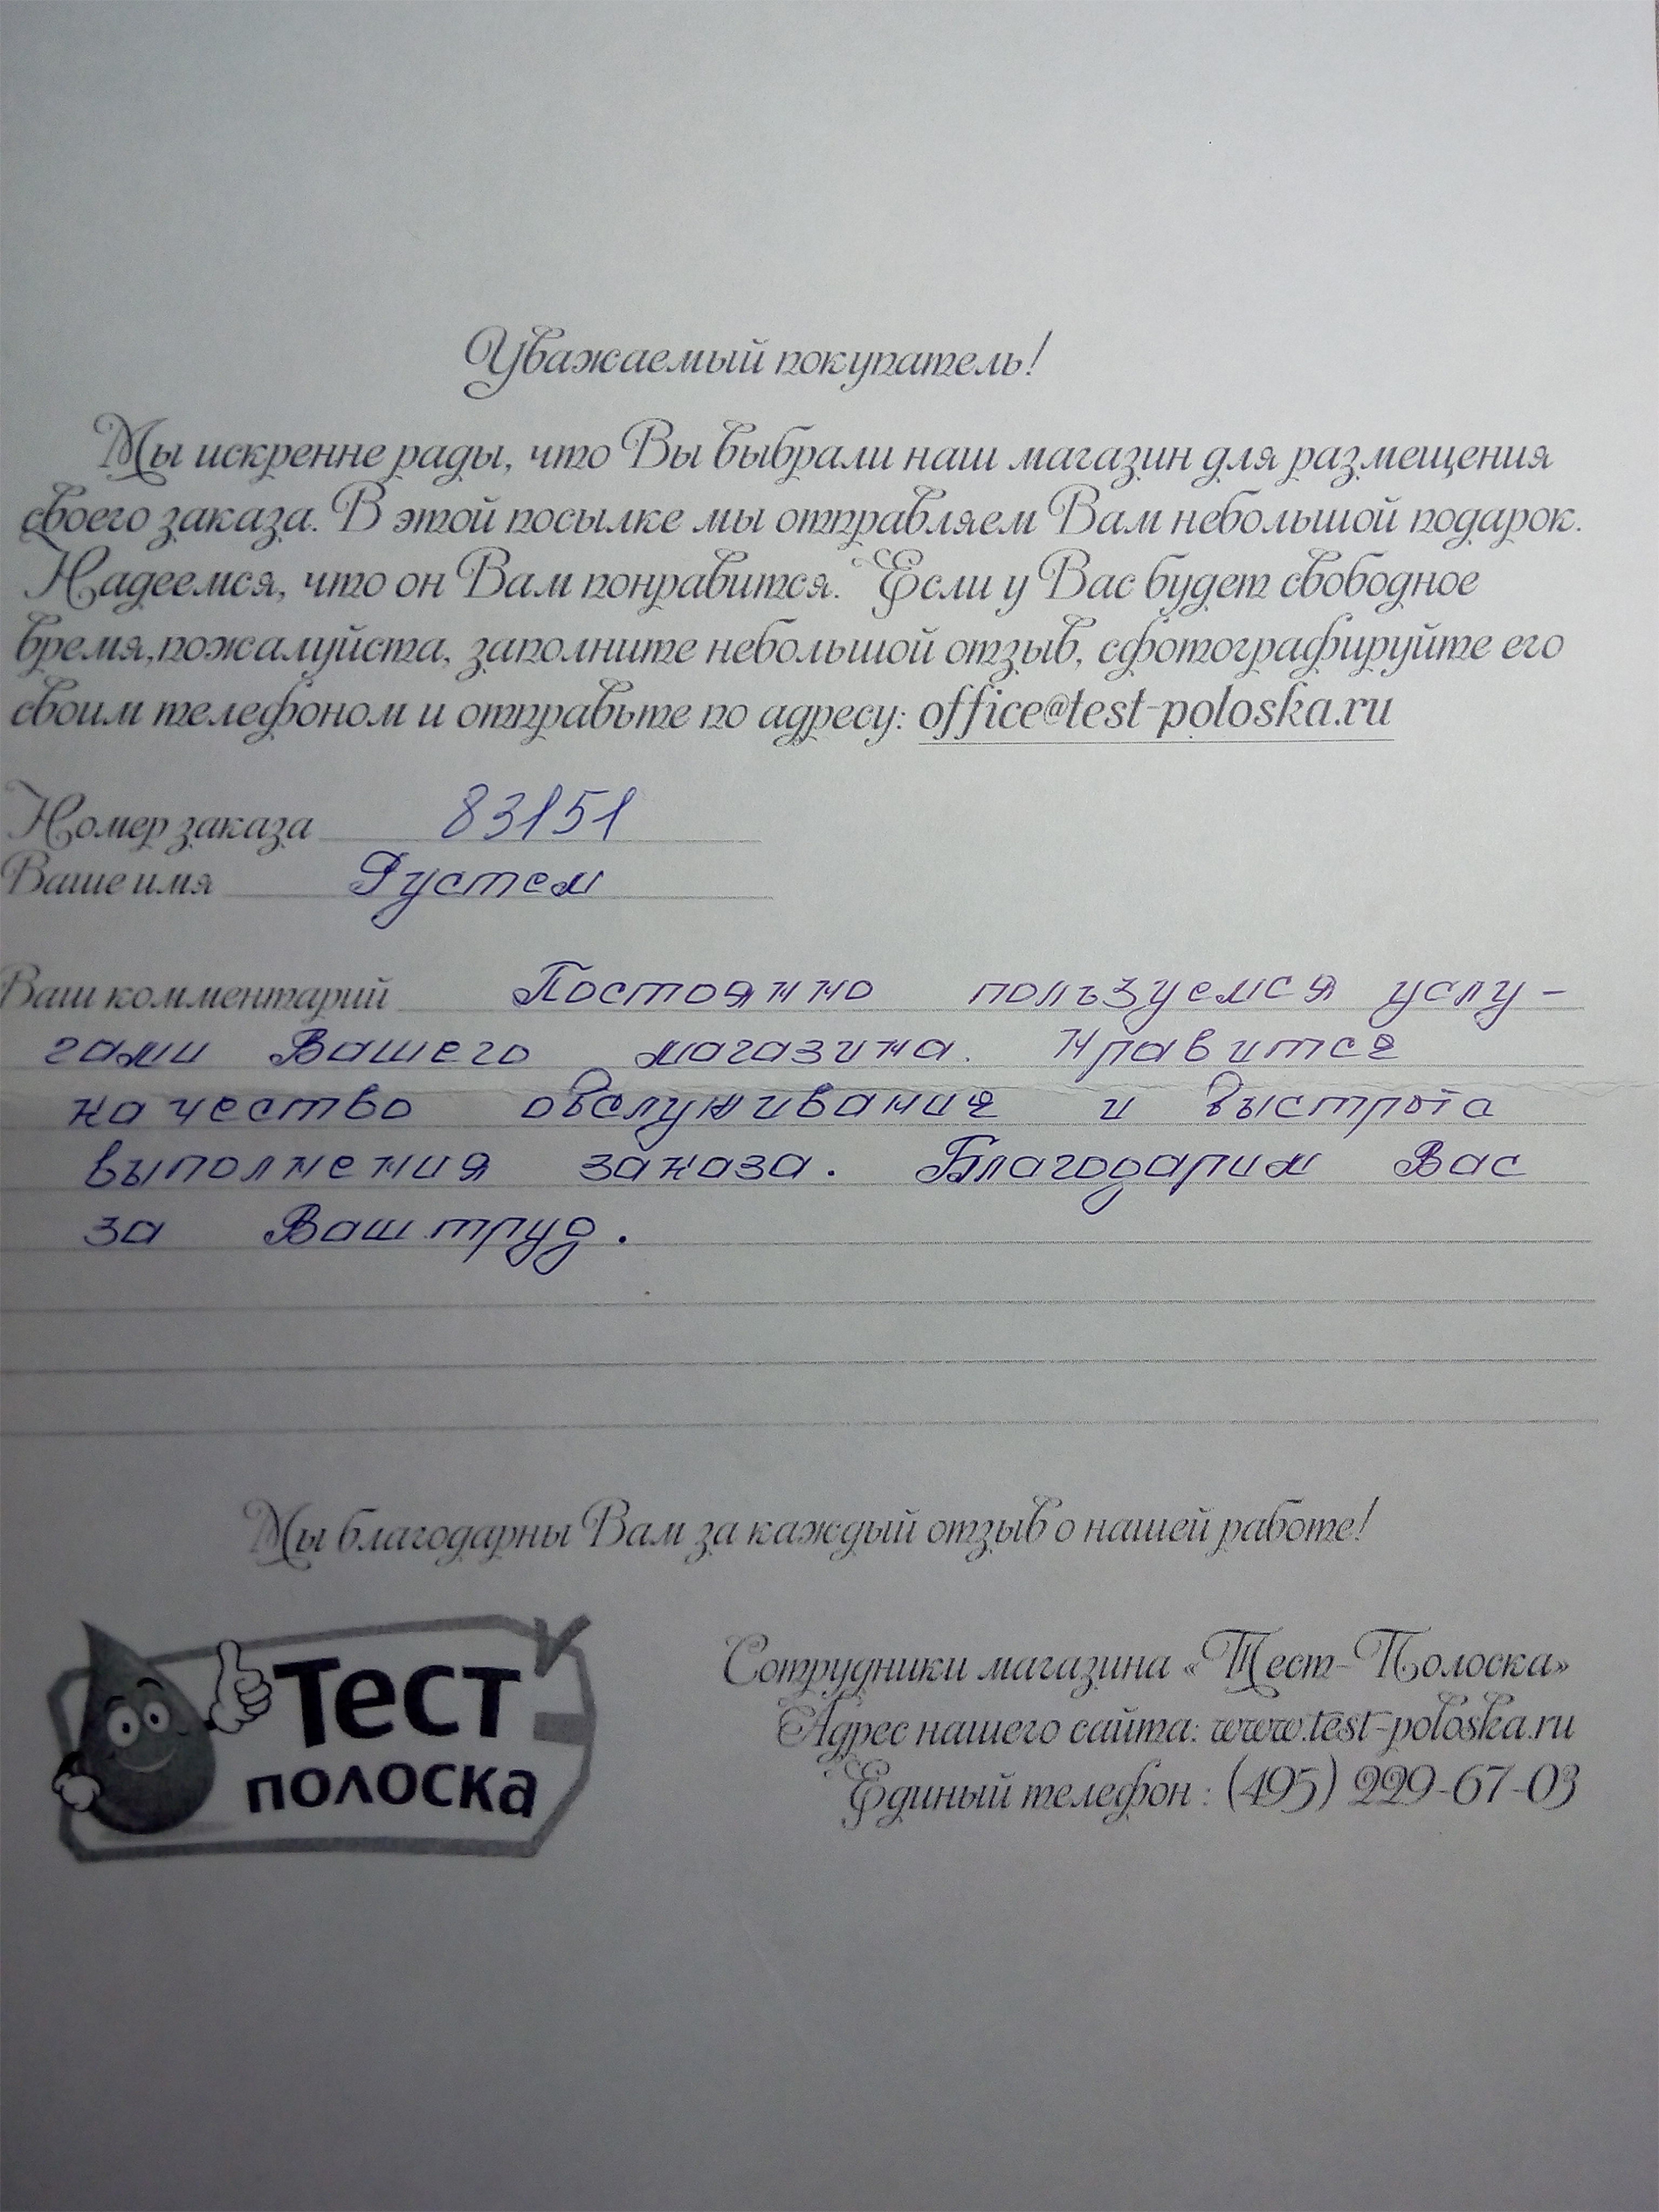 Уважаемый покупатель!
Мы искренне рады, что Вы выбрали наш магазин для размещения
своего заказа. В этой посылке мы отправляем Вам небольшой подарок.
Надеемся, что он Вам понравится. Если у Вас будет свободное
время,пожалуйста, заполните небольшой отзыв, сфотографируйте его
своим телефоном и отправьте по адресу: office@test-poloska.ru
Номер заказа 83151
Ваше имя Рустем
Ваш комментарий Постоянно пользуемся услу-
гами Вашего магазина. Нравится
качество обслуживания и быстрота
выполнения заказа. Благодарим Вас
за Ваш труд.
Мы благодарны Вам за каждый отзыв о нашей работе!
Тест
полоска
Сотрудники магазина «Тест-Полоска»
Адрес нашего сайта: www.test-poloska.ru
Единый телефон : (495) 229-67-03